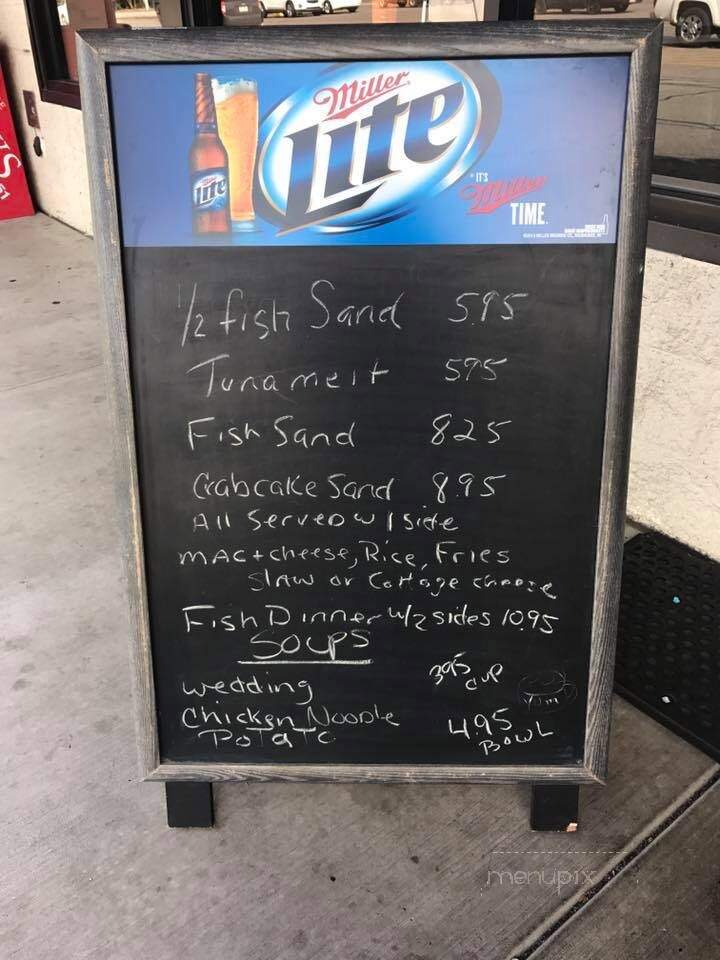 Miller
Lite
Lite
IT'S
Miller
TIME.
1/2 fish Sand 5.95
Tuna melt 595
Fish Sand 825
Crabcake Sand 8.95
All Served w 1 side
MAC + cheese, Rice, Fries
Slaw or Cottage cheese
Fish Dinner w/2 sides 10.95
SOUPS
wedding 395 cup
Yum
Chicken Noodle 4.95
Potato BOWL
menupix